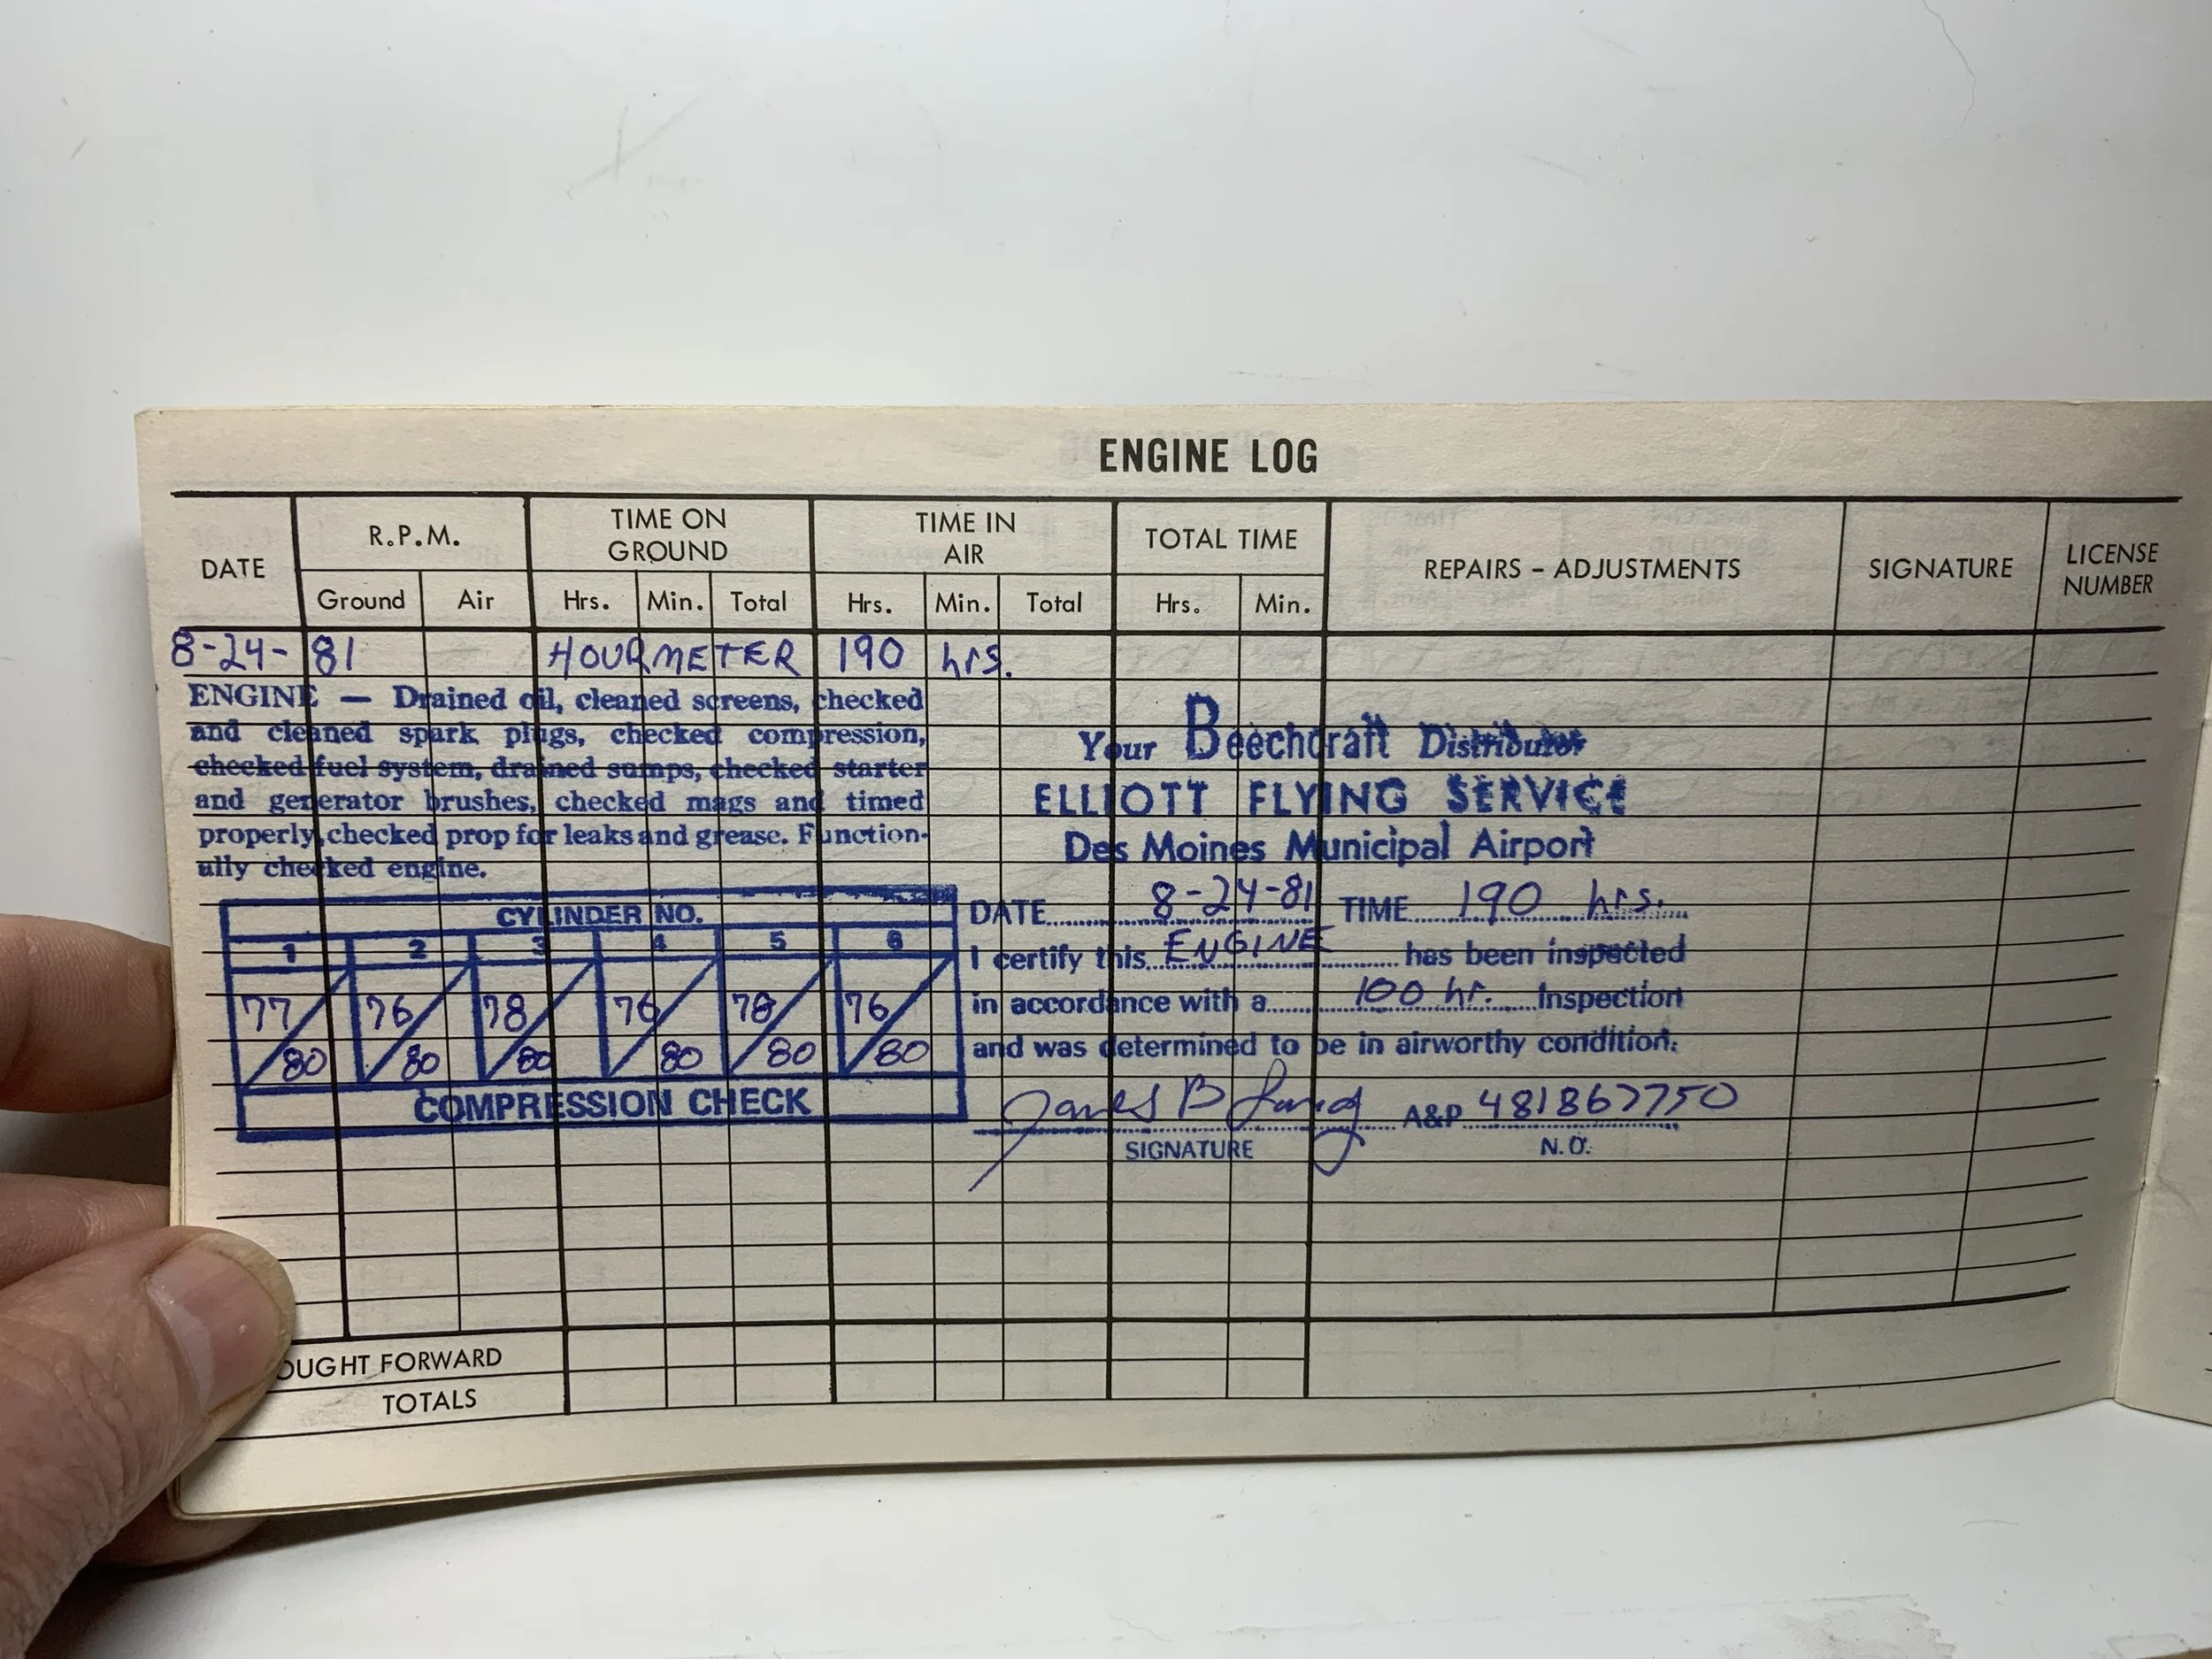 ENGINE LOG
DATE R.P.M. TIME ON GROUND TIME IN AIR TOTAL TIME REPAIRS – ADJUSTMENTS SIGNATURE LICENSE NUMBER
Ground Air Hrs. Min. Total Hrs. Min. Total Hrs. Min.
8-24-81 HOURMETER 190 hrs.
ENGINE — Drained oil, cleaned screens, checked
and cleaned spark plugs, checked compression,
checked fuel system, drained sumps, checked starter
and generator brushes, checked mags and timed
properly, checked prop for leaks and grease. Function-
ally checked engine.
Your Beechcraft Distributor
ELLIOTT FLYING SERVICE
Des Moines Municipal Airport
DATE 8-24-81 TIME 190 hrs.
I certify this ENGINE has been inspected
in accordance with a 100 hr. Inspection
and was determined to be in airworthy condition.
James B A&P 481867750
SIGNATURE N.O.
CYLINDER NO.
1 2 3 4 5 6
77/80 76/80 78/80 76/80 78/80 76/80
COMPRESSION CHECK
OUGHT FORWARD
TOTALS